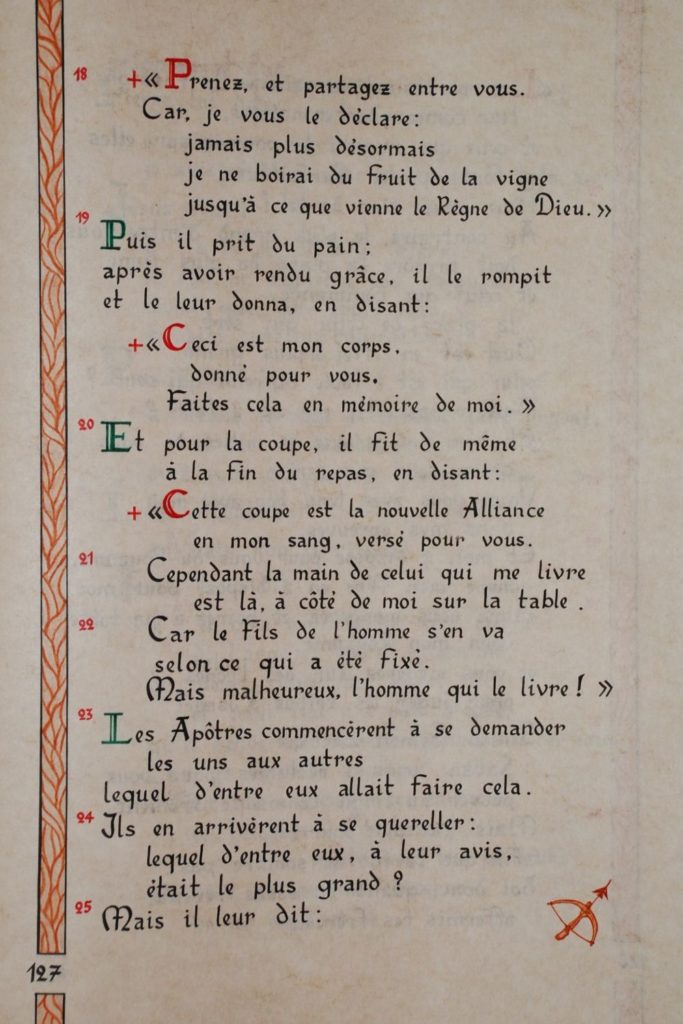 18 +« Prenez, et partagez entre vous.
Car, je vous le déclare:
jamais plus désormais
je ne boirai du fruit de la vigne
jusqu'à ce que vienne le Règne de Dieu. »
19 Puis il prit du pain;
après avoir rendu grâce, il le rompit
et le leur donna, en disant:
+« Ceci est mon corps,
donné pour vous.
Faites cela en mémoire de moi. »
20 Et pour la coupe, il fit de même
à la fin du repas, en disant:
+« Cette coupe est la nouvelle Alliance
en mon sang, versé pour vous.
21 Cependant la main de celui qui me livre
est là, à côté de moi sur la table.
22 Car le Fils de l'homme s'en va
selon ce qui a été fixé.
Mais malheureux, l'homme qui le livre! »
23 Les Apôtres commencèrent à se demander
les uns aux autres
lequel d'entre eux allait faire cela.
24 Ils en arrivèrent à se quereller:
lequel d'entre eux, à leur avis,
était le plus grand ?
25 Mais il leur dit:
127